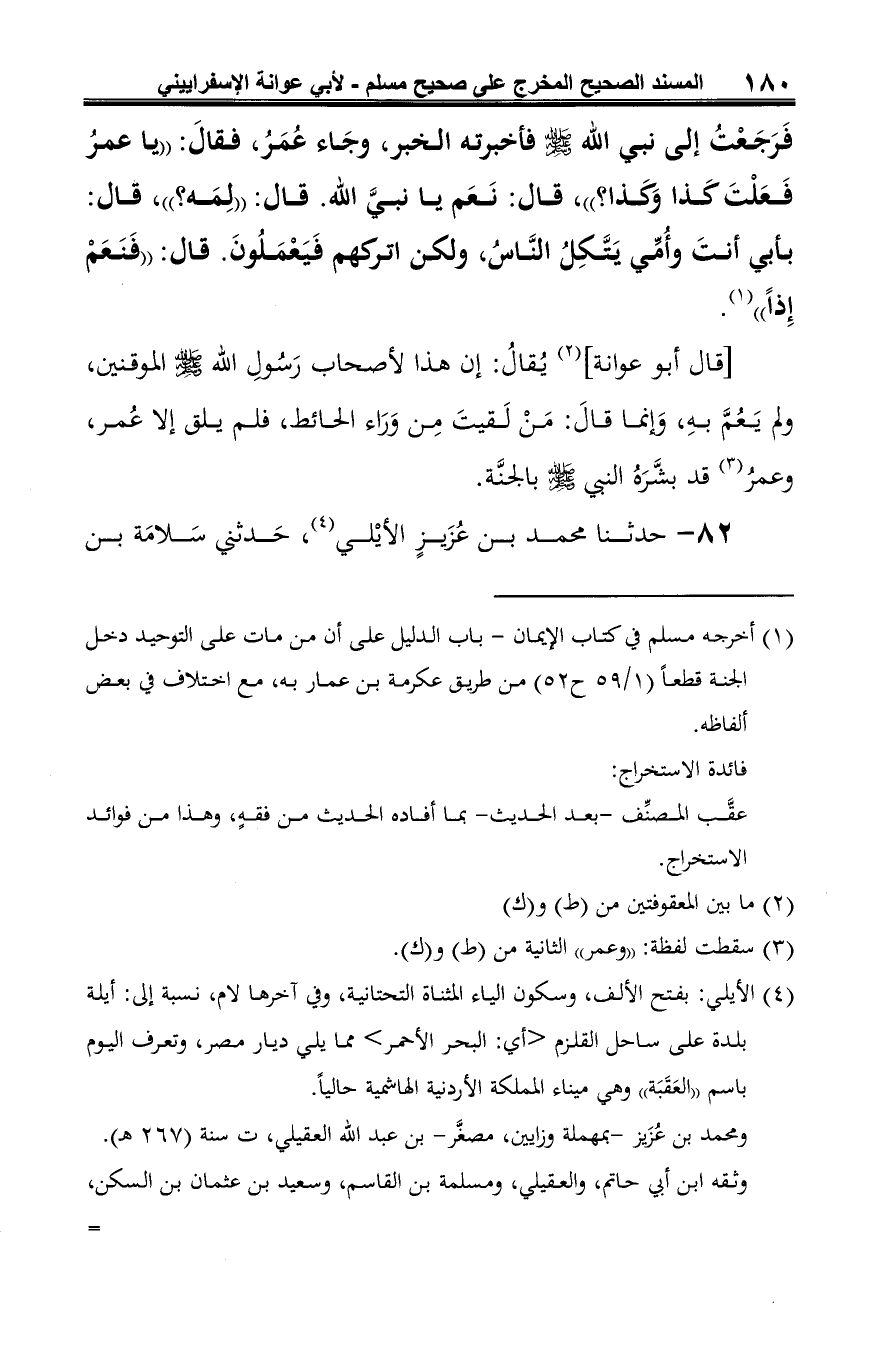 ١٨٠ المسند الصحيح المخرج على صحيح مسلم - لأبي عوانة الإسفراييني
فَرَجَعْتُ إلى نبي الله ﷺ فأخبرته الخبر، وجَاء عُمَرُ، فقالَ: ((يا عمرُ
فَعَلْتَ كَذا وَكَذا؟))، قال: نَعَم يا نبيَّ الله. قال: ((لِمَه؟))، قال:
بأبي أنتَ وأُمِّي يَتَّكِلُ النَّاسُ، ولكن اتركهم فَيَعْمَلُونَ. قال: ((فَنَعَمْ
إِذاً))(١).
[قال أبو عوانة](٢) يُقالُ: إن هذا لأصحاب رَسُولِ الله ﷺ الموقنين،
ولم يَعُمَّ بهِ، وَإنما قالَ: مَنْ لَقيتَ مِن وَرَاء الحائط، فلم يلق إلا عُمر،
وعمرُ(٣) قد بشَّرَهُ النبي ﷺ بالجنَّة.
٨٢- حدثنا محمد بن عُزَيزٍ الأيْلي(٤)، حَدثني سَلامَة بن
(١) أخرجه مسلم في كتاب الإيمان - باب الدليل على أن من مات على التوحيد دخل
الجنة قطعاً (٥٩/١ ح٥٢) من طريق عكرمة بن عمار به، مع اختلاف في بعض
ألفاظه.
فائدة الاستخراج:
عقَّب المصنِّف -بعد الحديث- بما أفاده الحديث من فقهٍ، وهذا من فوائد
الاستخراج.
(٢) ما بين المعقوفتين من (ط) و(ك)
(٣) سقطت لفظة: ((وعمر)) الثانية من (ط) و(ك).
(٤) الأيلي: بفتح الألف، وسكون الياء المثناة التحتانية، وفي آخرها لام، نسبة إلى: أيلة
بلدة على ساحل القلزم <أي: البحر الأحمر> مما يلي ديار مصر، وتعرف اليوم
باسم ((العَقَبَة)) وهي ميناء المملكة الأردنية الهاشمية حالياً.
ومحمد بن عُزَيز -بمهملة وزايين، مصغَّر- بن عبد الله العقيلي، ت سنة (٢٦٧ هـ).
وثقه ابن أبي حاتم، والعقيلي، ومسلمة بن القاسم، وسعيد بن عثمان بن السكن،
=